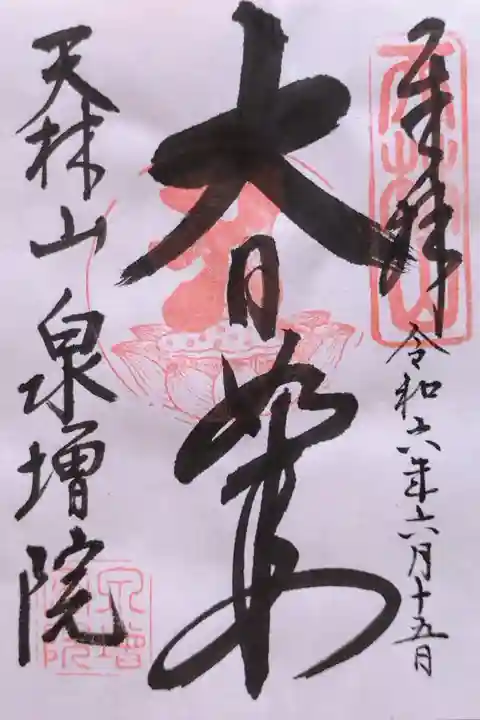 奉拝
令和六年六月十五日
大日如来
天林山 泉増院